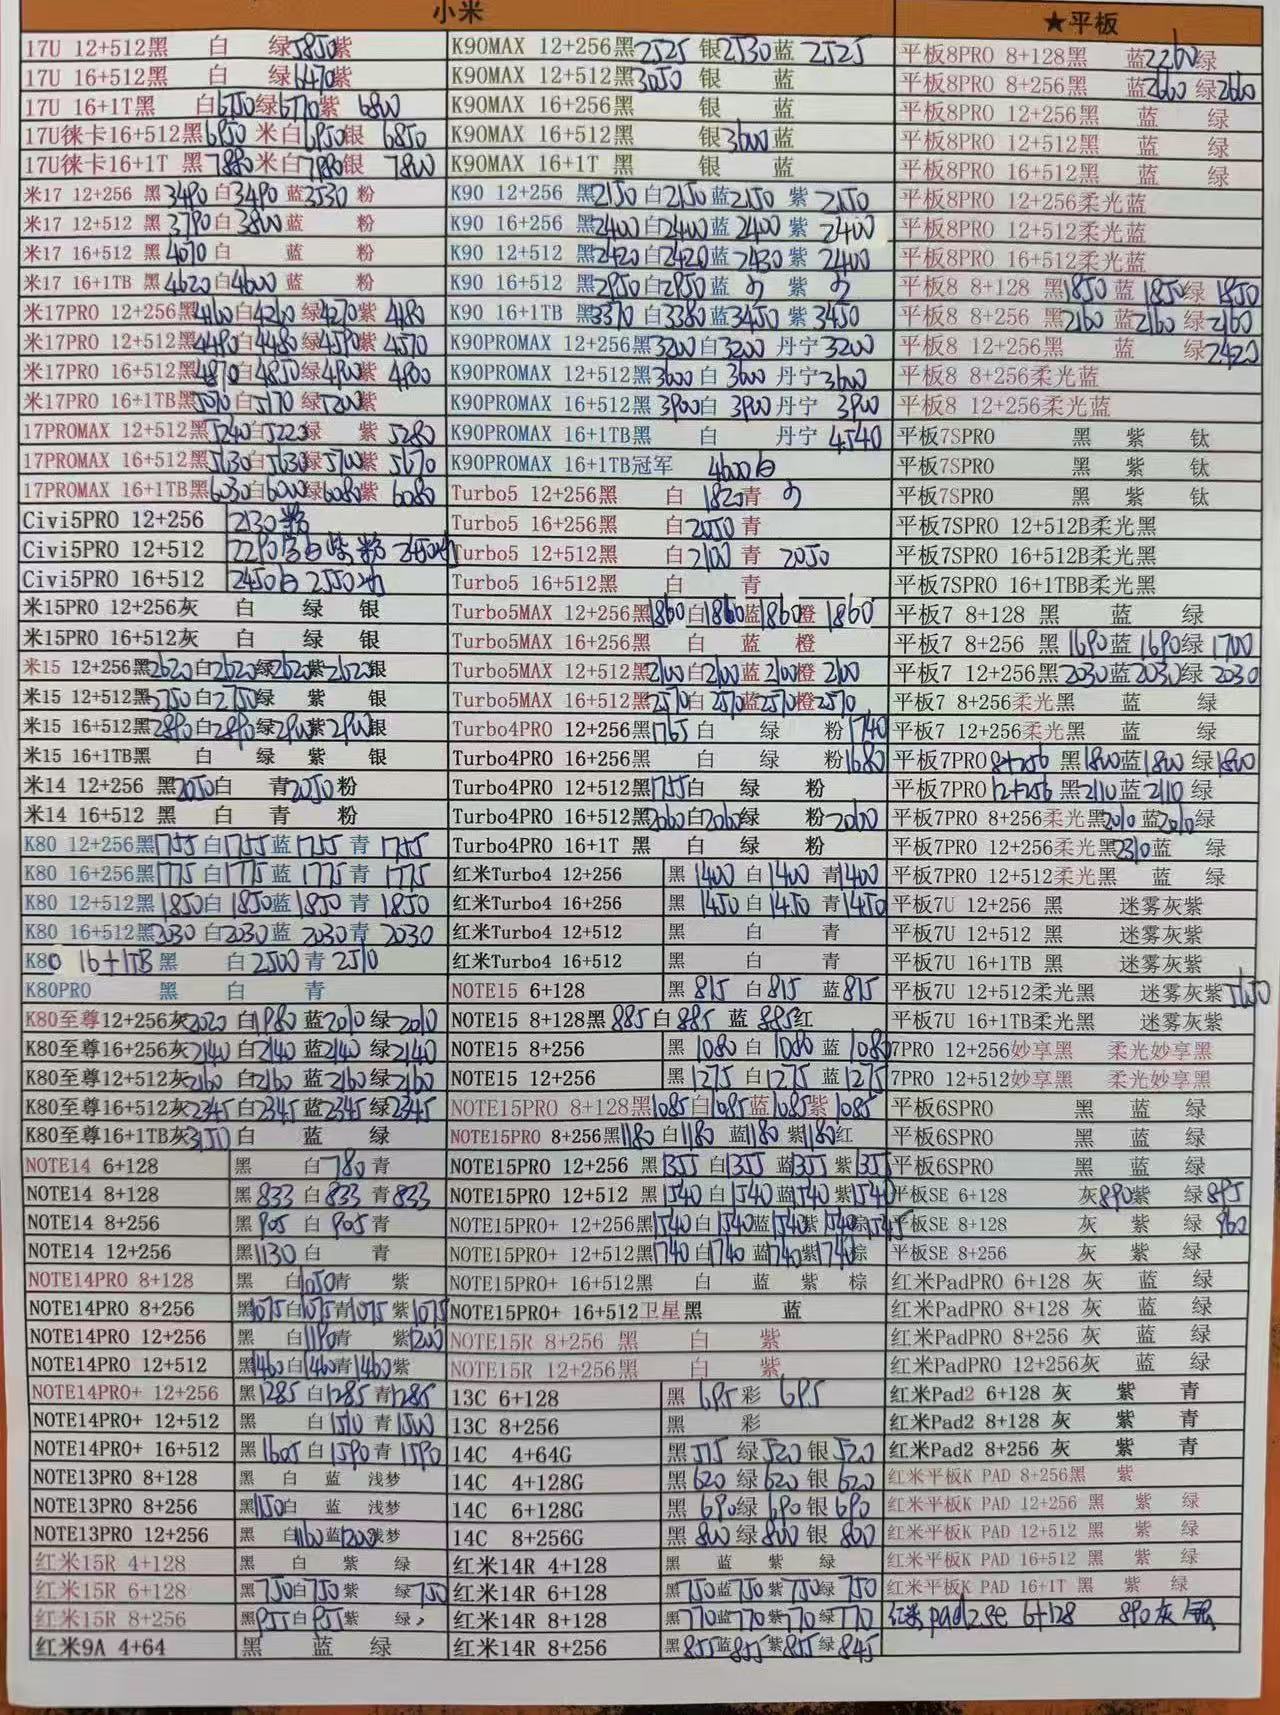 小米
17U 12+512黑 白 绿5850紫
17U 16+512黑 白 绿6470紫
17U 16+1T黑 白6750绿6770紫 6800
17U徕卡16+512黑6950 米白6950银 6850
17U徕卡16+1T 黑7880米白7880银 7800
米17 12+256 黑3490白3490蓝3530 粉
米17 12+512 黑3790白3800蓝 粉
米17 16+512 黑4070白 蓝 粉
米17 16+1TB 黑4620白4600蓝 粉
米17PRO 12+256黑4160白4260绿4270紫 4180
米17PRO 12+512黑4490白4480绿4590紫 4570
米17PRO 16+512黑4870白4850绿4900紫 4900
米17PRO 16+1TB黑5070白5170 绿5200紫
17PROMAX 12+512黑5240白5220绿 紫 5280
17PROMAX 16+512黑5630白5630绿5700紫 5670
17PROMAX 16+1TB黑6030白6000绿6080紫 6080
Civi5PRO 12+256 2130粉
Civi5PRO 12+512 2290白紫粉 2450
Civi5PRO 16+512 2450白 2550
米15PRO 12+256灰 白 绿 银
米15PRO 16+512灰 白 绿 银
米15 12+256黑2620白2620绿2620紫2620银
米15 12+512黑2750白2750绿 紫 银
米15 16+512黑2890白2890绿2900紫2900银
米15 16+1TB黑 白 绿 紫 银
米14 12+256 黑2050白 青2050粉
米14 16+512 黑 白 青 粉
K80 12+256黑1755白1755蓝1755青 1755
K80 16+256黑1775白1775蓝 1775青 1775
K80 12+512黑1850白 1850蓝1850 青 1850
K80 16+512黑2030 白2030蓝 2030青 2030
K80 16+1TB 黑 白2500青 2510
K80PRO 黑 白 青
K80至尊12+256灰2020 白1980 蓝2010 绿2010
K80至尊16+256灰2140 白2140 蓝2140 绿2140
K80至尊12+512灰2160 白2160 蓝2160 绿2160
K80至尊16+512灰2345白2345 蓝2345绿2345
K80至尊16+1TB灰3150白 蓝 绿
NOTE14 6+128 黑 白780青
NOTE14 8+128 黑833 白833 青833
NOTE14 8+256 黑905 白 905青
NOTE14 12+256 黑1130白 青
NOTE14PRO 8+128 黑 白1050青 紫
NOTE14PRO 8+256 黑1075白1075青1075 紫1075
NOTE14PRO 12+256 黑 白1190青 紫1200
NOTE14PRO 12+512 黑1460白1460青1460紫
NOTE14PRO+ 12+256 黑1285白1285青1285
NOTE14PRO+ 12+512 黑 白1510青1500
NOTE14PRO+ 16+512 黑1605白1590青 1590
NOTE13PRO 8+128 黑 白 蓝 浅梦
NOTE13PRO 8+256 黑1150白 蓝 浅梦
NOTE13PRO 12+256 黑 白1160蓝1200浅梦
红米15R 4+128 黑 白 紫 绿
红米15R 6+128 黑750白750紫 绿750
红米15R 8+256 黑955白955紫 绿
红米9A 4+64 黑 蓝 绿
K90MAX 12+256黑2525 银2530蓝 2525
K90MAX 12+512黑3050 银 蓝
K90MAX 16+256黑 银 蓝
K90MAX 16+512黑 银3600蓝
K90MAX 16+1T 黑 银 蓝
K90 12+256 黑2150白2150蓝2150 紫 2150
K90 16+256 黑2400白2400蓝 2400 紫 2400
K90 12+512 黑2420白2420蓝2430 紫 2400
K90 16+512 黑2950白2950蓝 紫
K90 16+1TB 黑3370 白3380蓝3450 紫3450
K90PROMAX 12+256黑3200白3200 丹宁3200
K90PROMAX 12+512黑3600白 3600 丹宁3600
K90PROMAX 16+512黑3900白 3900丹宁3900
K90PROMAX 16+1TB黑 白 丹宁 4540
K90PROMAX 16+1TB冠军 4600白
Turbo5 12+256黑 白 1820青
Turbo5 16+256黑 白2050青
Turbo5 12+512黑 白2100 青 2050
Turbo5 16+512黑 白 青
Turbo5MAX 12+256黑1860白1860蓝1860橙 1860
Turbo5MAX 16+256黑 白 蓝 橙
Turbo5MAX 12+512黑2100白2100蓝2100橙 2100
Turbo5MAX 16+512黑2570白2570蓝2570橙2570
Turbo4PRO 12+256黑1765白 绿 粉1740
Turbo4PRO 16+256黑 白 绿 粉1680
Turbo4PRO 12+512黑1755白 绿 粉
Turbo4PRO 16+512黑2060白2060绿 粉2060
Turbo4PRO 16+1T 黑 白 绿 粉
红米Turbo4 12+256 黑 1400 白1400 青1400
红米Turbo4 16+256 黑 1450 白1450 青1450
红米Turbo4 12+512 黑 白 青
红米Turbo4 16+512 黑 白 青
NOTE15 6+128 黑 815 白815 蓝815
NOTE15 8+128黑 885白885 蓝 885红
NOTE15 8+256 黑 1080 白 1080 蓝 1080
NOTE15 12+256 黑1275 白1275 蓝1275
NOTE15PRO 8+128黑1085白1085蓝1085紫 1085
NOTE15PRO 8+256黑1180 白1180 蓝1180 紫1180红
NOTE15PRO 12+256 黑1355 白1355 蓝1355 紫1355
NOTE15PRO 12+512 黑1540白1540蓝1540紫1540
NOTE15PRO+ 12+256黑1540白1540蓝1540紫1540棕1545
NOTE15PRO+ 12+512黑1740白1740 蓝1740紫1740棕
NOTE15PRO+ 16+512黑 白 蓝 紫 棕
NOTE15PRO+ 16+512卫星黑 蓝
NOTE15R 8+256 黑 白 紫
NOTE15R 12+256黑 白 紫
13C 6+128 黑 695 彩 695
13C 8+256 黑 彩
14C 4+64G 黑515 绿520 银520
14C 4+128G 黑620 绿620 银620
14C 6+128G 黑690绿690银690
14C 8+256G 黑800绿800 银 800
红米14R 4+128 黑 蓝 紫 绿
红米14R 6+128 黑750蓝750 紫750绿 750
红米14R 8+128 黑770蓝770紫770绿770
红米14R 8+256 黑855蓝855紫855绿845
★平板
平板8PRO 8+128黑 蓝2260绿
平板8PRO 8+256黑 蓝2660 绿2660
平板8PRO 12+256黑 蓝 绿
平板8PRO 12+512黑 蓝 绿
平板8PRO 16+512黑 蓝 绿
平板8PRO 12+256柔光蓝
平板8PRO 12+512柔光蓝
平板8PRO 16+512柔光蓝
平板8 8+128 黑1850 蓝 1850绿 1850
平板8 8+256 黑2160 蓝2160 绿2160
平板8 12+256黑 蓝 绿2420
平板8 8+256柔光蓝
平板8 12+256柔光蓝
平板7SPRO 黑 紫 钛
平板7SPRO 黑 紫 钛
平板7SPRO 黑 紫 钛
平板7SPRO 12+512B柔光黑
平板7SPRO 16+512B柔光黑
平板7SPRO 16+1TBB柔光黑
平板7 8+128 黑 蓝 绿
平板7 8+256 黑 1690蓝 1690绿 1700
平板7 12+256黑2030蓝2030绿 2030
平板7 8+256柔光黑 蓝 绿
平板7 12+256柔光黑 蓝 绿
平板7PRO8+256 黑1800蓝1800 绿1800
平板7PRO 12+256 黑2110蓝2110 绿
平板7PRO 8+256柔光黑2010蓝2010绿
平板7PRO 12+256柔光黑2310蓝 绿
平板7PRO 12+512柔光黑 蓝 绿
平板7U 12+256 黑 迷雾灰紫
平板7U 12+512 黑 迷雾灰紫
平板7U 16+1TB 黑 迷雾灰紫
平板7U 12+512柔光黑 迷雾灰紫5650
平板7U 16+1TB柔光黑 迷雾灰紫
7PRO 12+256妙享黑 柔光妙享黑
7PRO 12+512妙享黑 柔光妙享黑
平板6SPRO 黑 蓝 绿
平板6SPRO 黑 蓝 绿
平板6SPRO 黑 蓝 绿
平板SE 6+128 灰890紫 绿895
平板SE 8+128 灰 紫 绿 960
平板SE 8+256 灰 紫 绿
红米PadPRO 6+128 灰 蓝 绿
红米PadPRO 8+128 灰 蓝 绿
红米PadPRO 8+256 灰 蓝 绿
红米PadPRO 12+256灰 蓝 绿
红米Pad2 6+128 灰 紫 青
红米Pad2 8+128 灰 紫 青
红米Pad2 8+256 灰 紫 青
红米平板K PAD 8+256黑 紫
红米平板K PAD 12+256 黑 紫 绿
红米平板K PAD 12+512 黑 紫 绿
红米平板K PAD 16+512 黑 紫 绿
红米平板K PAD 16+1T 黑 紫 绿
红米 pad2se 6+128 890灰